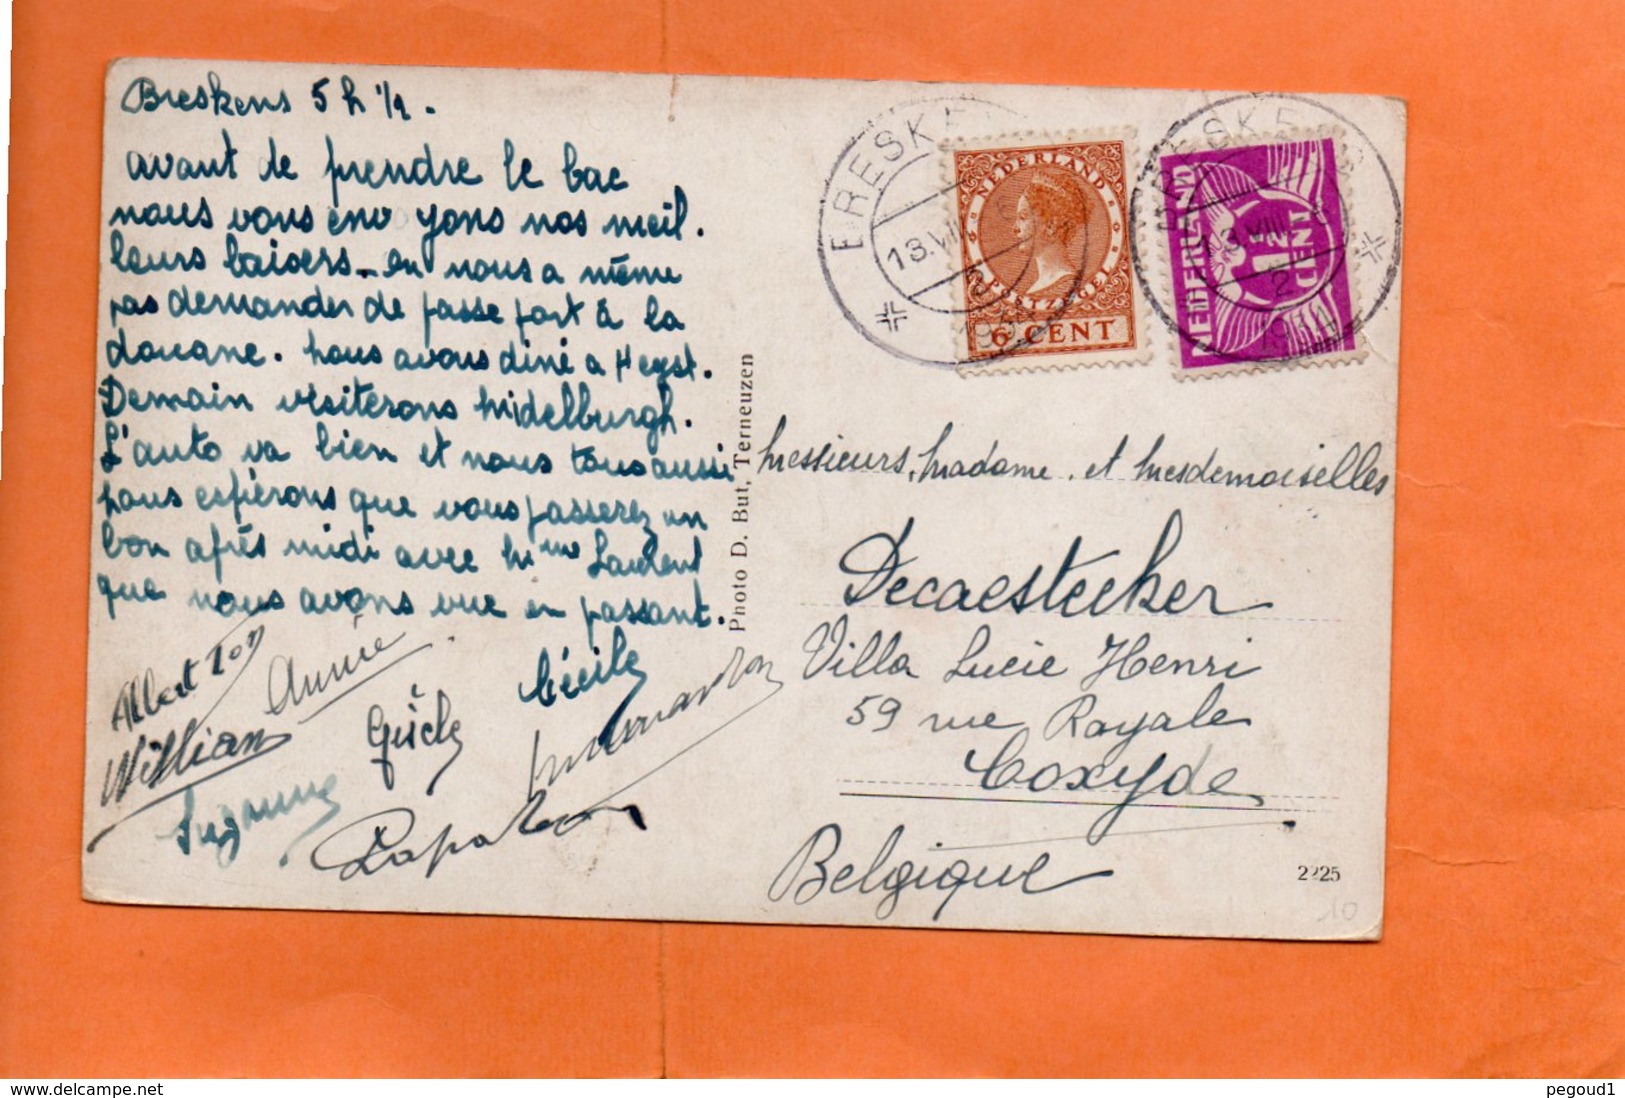 Breskens 5 h 1/2.
avant de prendre le bac
nous vous envoyons nos meil.
leurs baisers _ on nous a même
pas demander de passe port à la
douane. Nous avons diné a Heyst.
Demain visiterons Midelburgh.
L'auto va bien et nous tous aussi
Nous espérons que vous passerez un
bon après midi avec Mme Laurent
que nous avons vue en passant.
Albert
Annie
Cécile
William
Gisèle
Suzanne
Papa
Photo D. But, Terneuzen
BRESKENS
13.VIII
1934
NEDERLAND
POSTZEGEL
6 CENT
BRESKENS
13.VIII
2
1934
NEDERLAND
1½ CENT
Messieurs, Madame, et Mesdemoiselles
Decaestecker
Villa Lucie Henri
59 rue Royale
Coxyde
Belgique
2225
10
www.delcampe.net
pegoud1